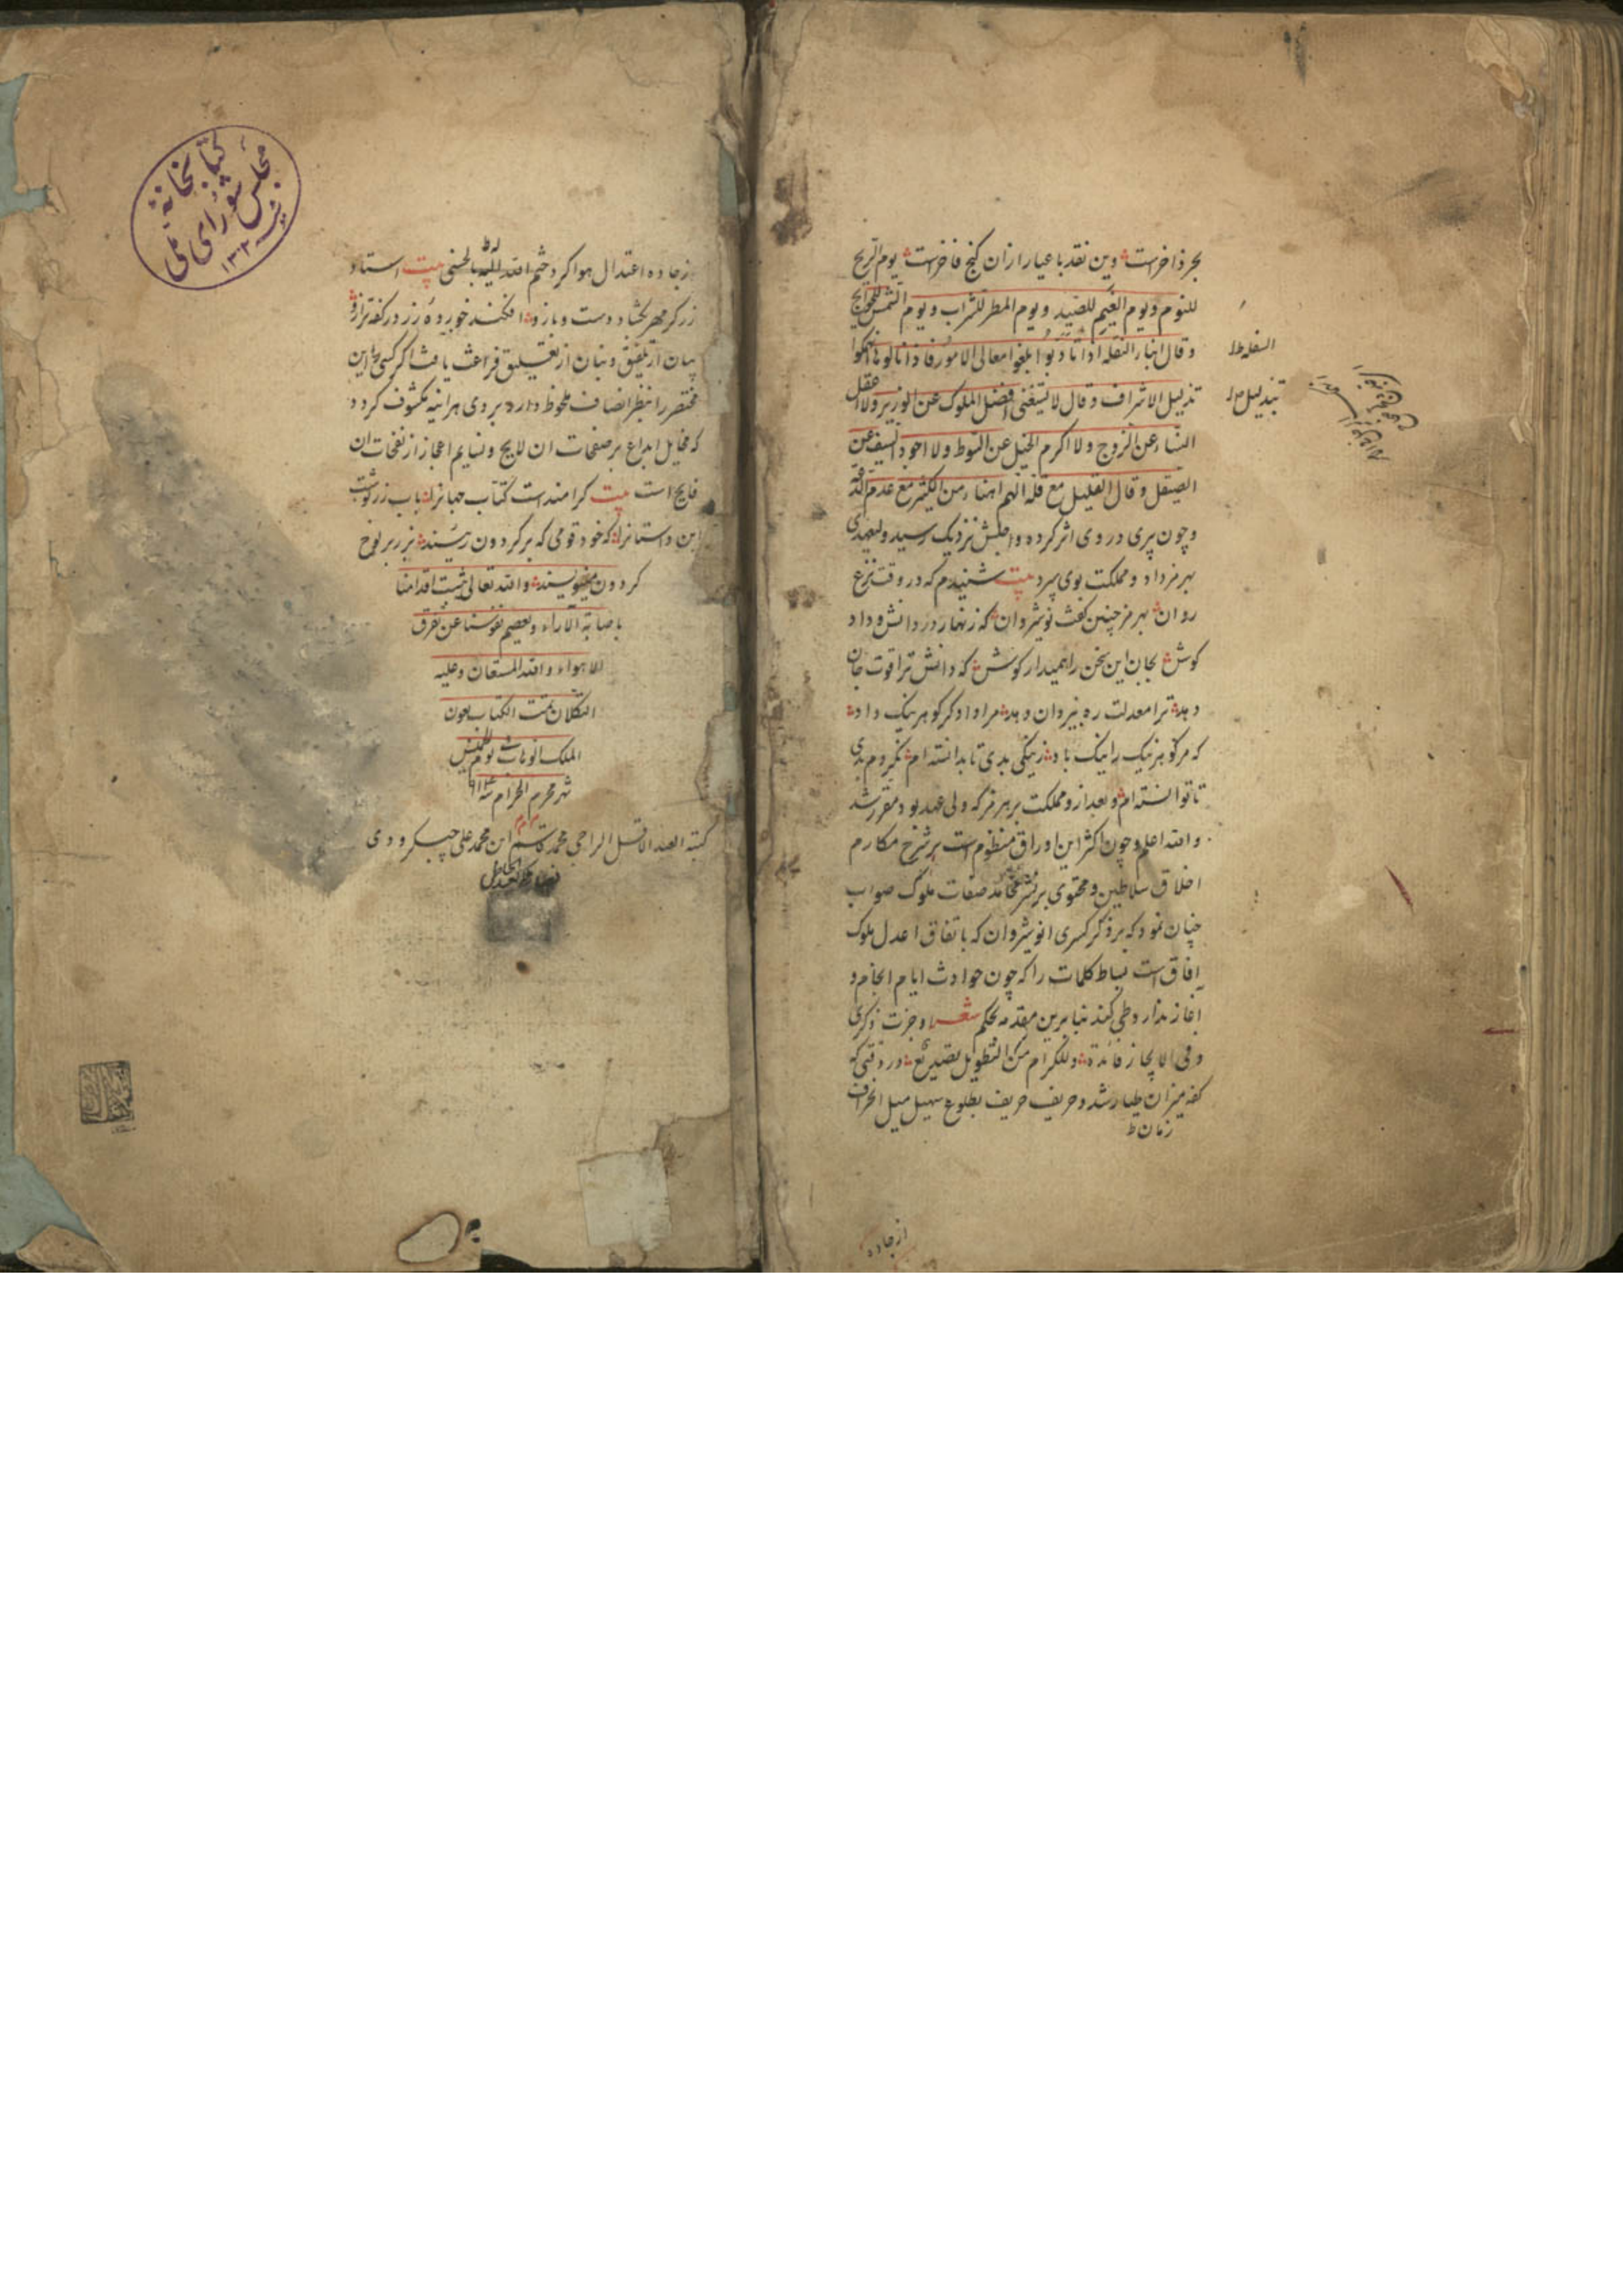 بحر ذاخرست وین نقد با عیار ازان کنج فاخرست یوم الریح
للنوم ویوم الغیم للصید ویوم المطر للشراب ویوم الشمس للحوایج
وقال ابناء السفله اذا تادبوا بلغوا معالی الامور فاذا نالوها
تذلیل الاشراف وقال لا یستغنی افضل الملوک عن الوزیر ولا اعقل
النساء عن الزوج ولا اکرم الخیل عن السوط ولا اجود السیف عن
الصیقل وقال القلیل مع قلة الهم اهناء من الکثیر مع عدم
وچون پیری در وی اثر کرده واجلش نزدیک رسید ولیعهدی
بهرمز داد و مملکت بوی سپرد بیت شنیدم که در وقت نزع
روان بهرمز چنین کفت نوشیروان که زنهار در دانش و داد
کوش بجان این سخن را همیدار کوش که دانش ترا قوت جان
دهد ترا معدلت ره بیزدان دهد مرا داد کر کوهر نیک داد
که مر کوهر نیک را نیک باد ز نیکی بدی تا بدانسته ام نکردم بدی
تا توانسته ام و بعد ازو مملکت بر هرمز که ولی عهد بود مقرر شد
والله اعلم و چون اکثر این اوراق منظوم است بر شرح مکارم
اخلاق سلاطین و محتوی بر نشر محامد صفات ملوک صواب
چنان نمود که بر ذکر کسری انوشیروان که باتفاق اعدل ملوک
آفاق است بساط کلمات را که چون حوادث ایام انجام و
آغاز ندارد طی کند بنا برین مقدمه بحکم شعر وجزت ذکری
وفی الایجاز فائدة وللکرام من التطویل تصدیع در وقتی که
کفه میزان طیار شد و حریف خریف بطلوع سهیل میل انحراف
زمان ط
از جاده
السفله ظ
تذلیل
کتابخانهٔ
مجلس شورای ملی
۱۳۰۲
از جاده اعتدال هوا کرد ختم الله بالحسنی بیت استاد
زر کر مهر بکشاد دست و بازو افکند خورده زر در کفه ترازو
بیان از تلفیق و بنان از تعلیق فراغت یافت اکر کسی این
مختصر را بنظر انصاف ملحوظ دارد بر وی هر اینه مکشوف کردد
که مخایل ابداع بر صفحات ان لایح و نسایم اعجاز از نفحات ان
فایح است بیت کرامندست کتاب جهانرا باب زر نوشت
این داستانرا که خود قومی که بر کردون رسند بزر بر لوح
کردون مینویسند والله تعالی یثبت اقدامنا
باصابة الآراء ویعصم نفوسنا عن تفرق
الاهواء والله المستعان وعلیه
التکلان تمت الکتاب بعون
الملک الوهاب
شهر محرم الحرام
کتبه العبد الاقل الراجی محمد قاسم ابن محمد علی